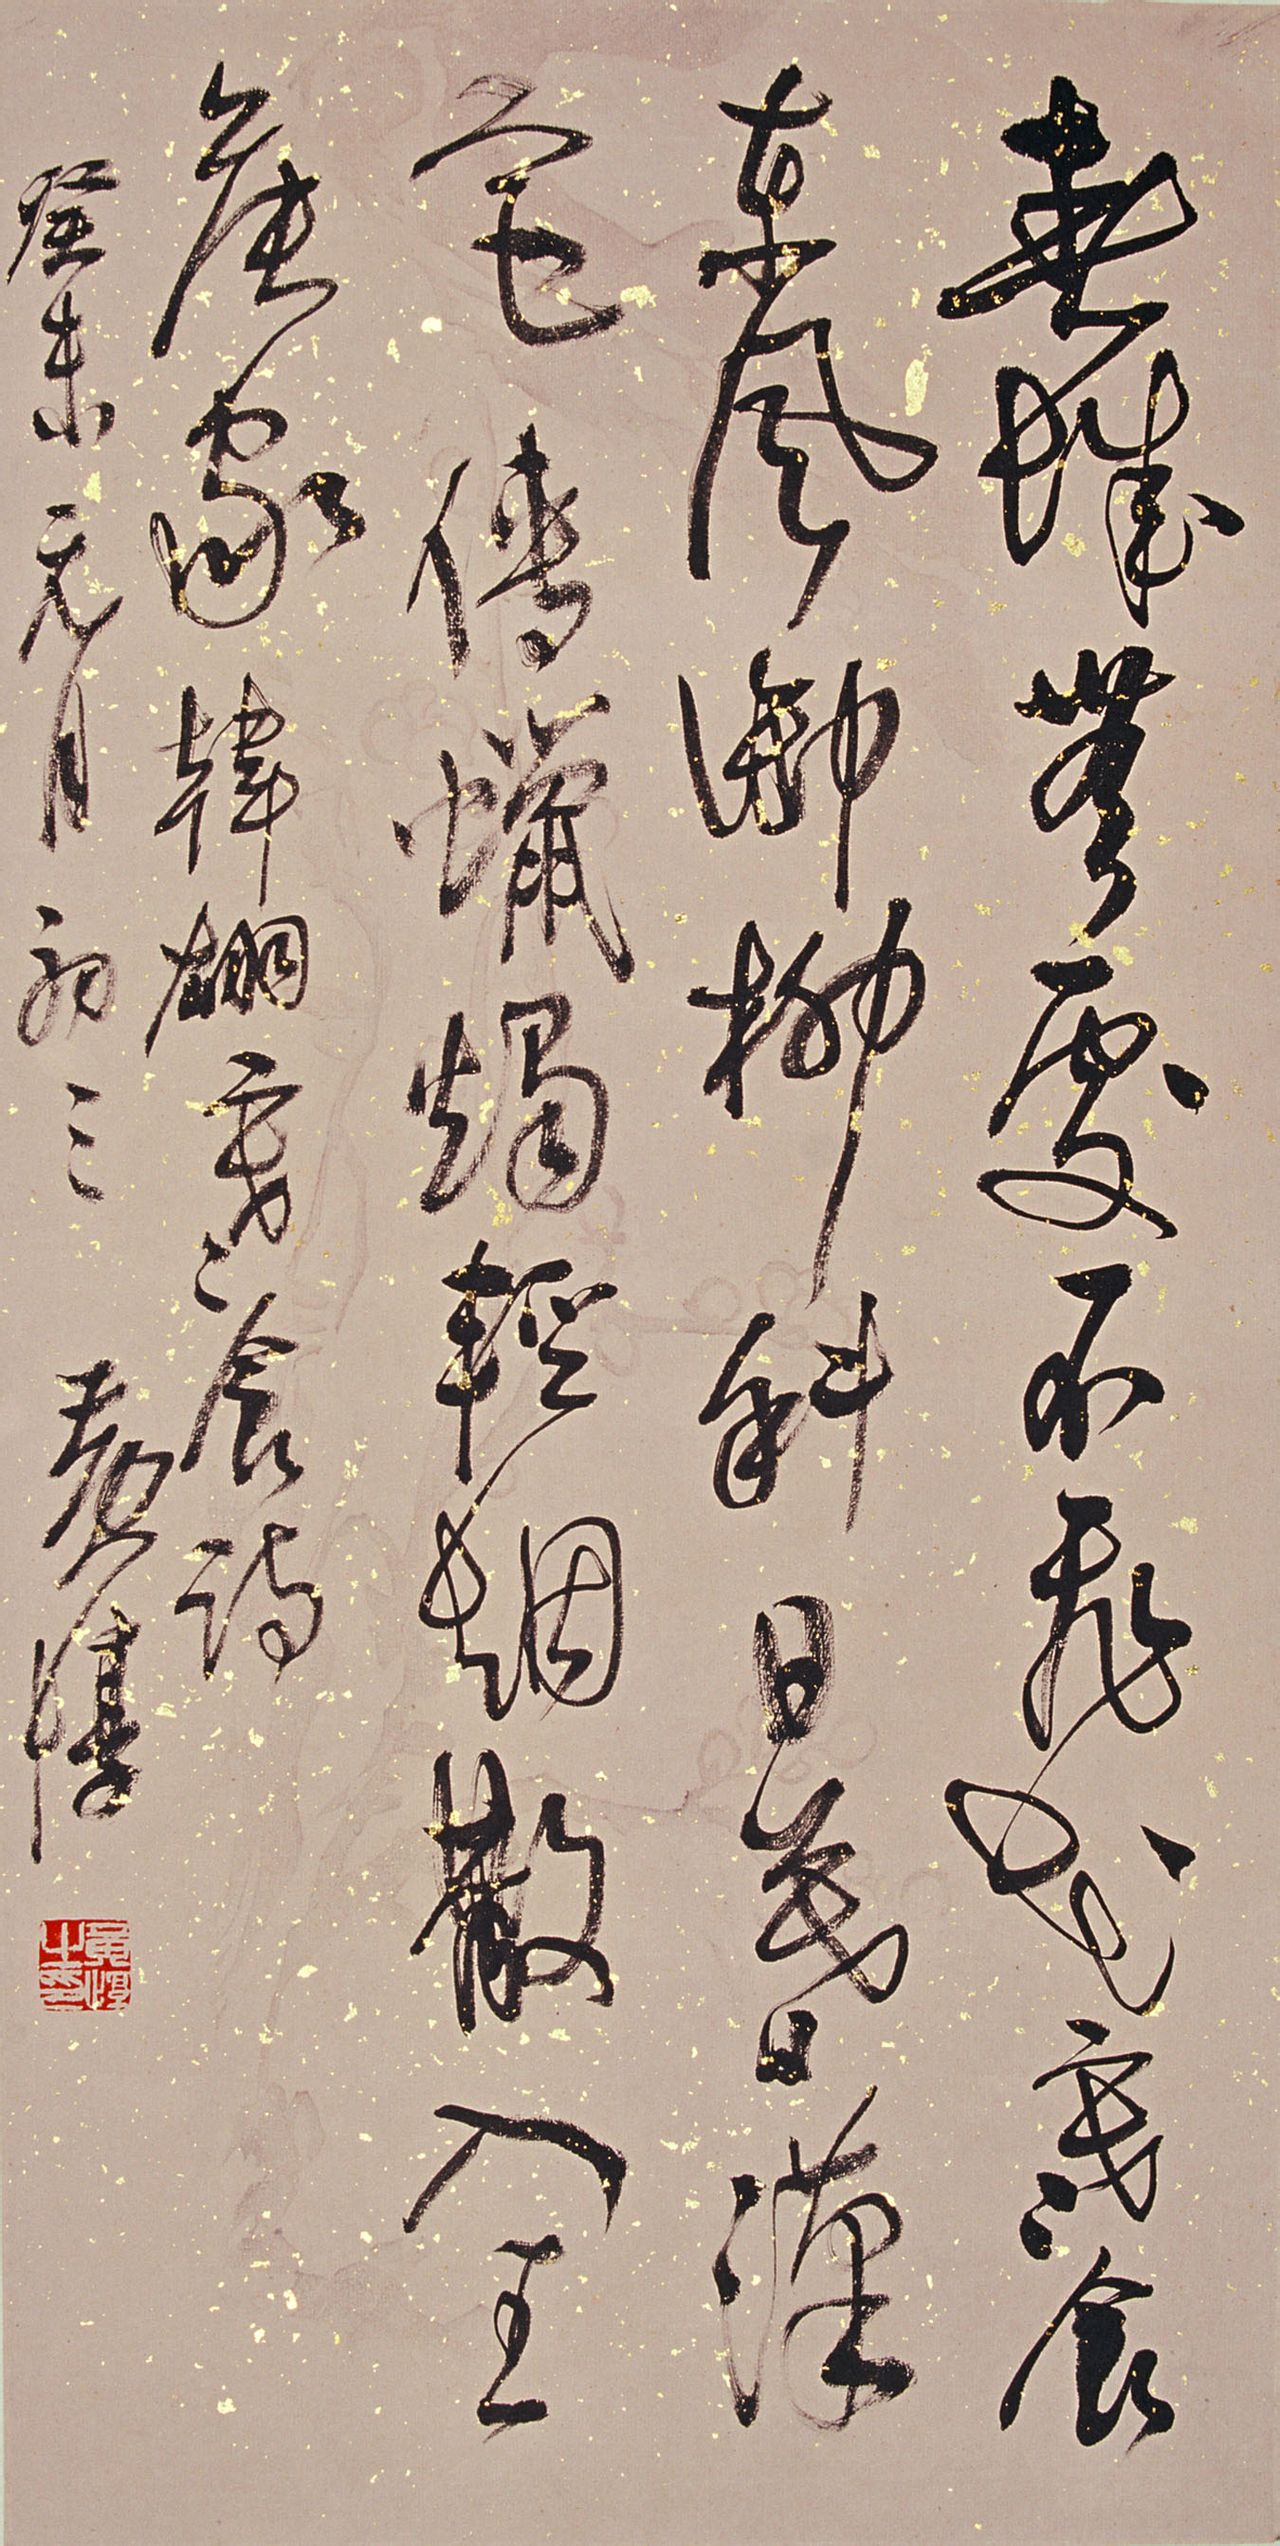 春城無處不飛花寒食
東風御柳斜日暮漢
宮傳蠟燭輕烟散入五
侯家韓翃寒食詩
癸未元月初三 黃惇